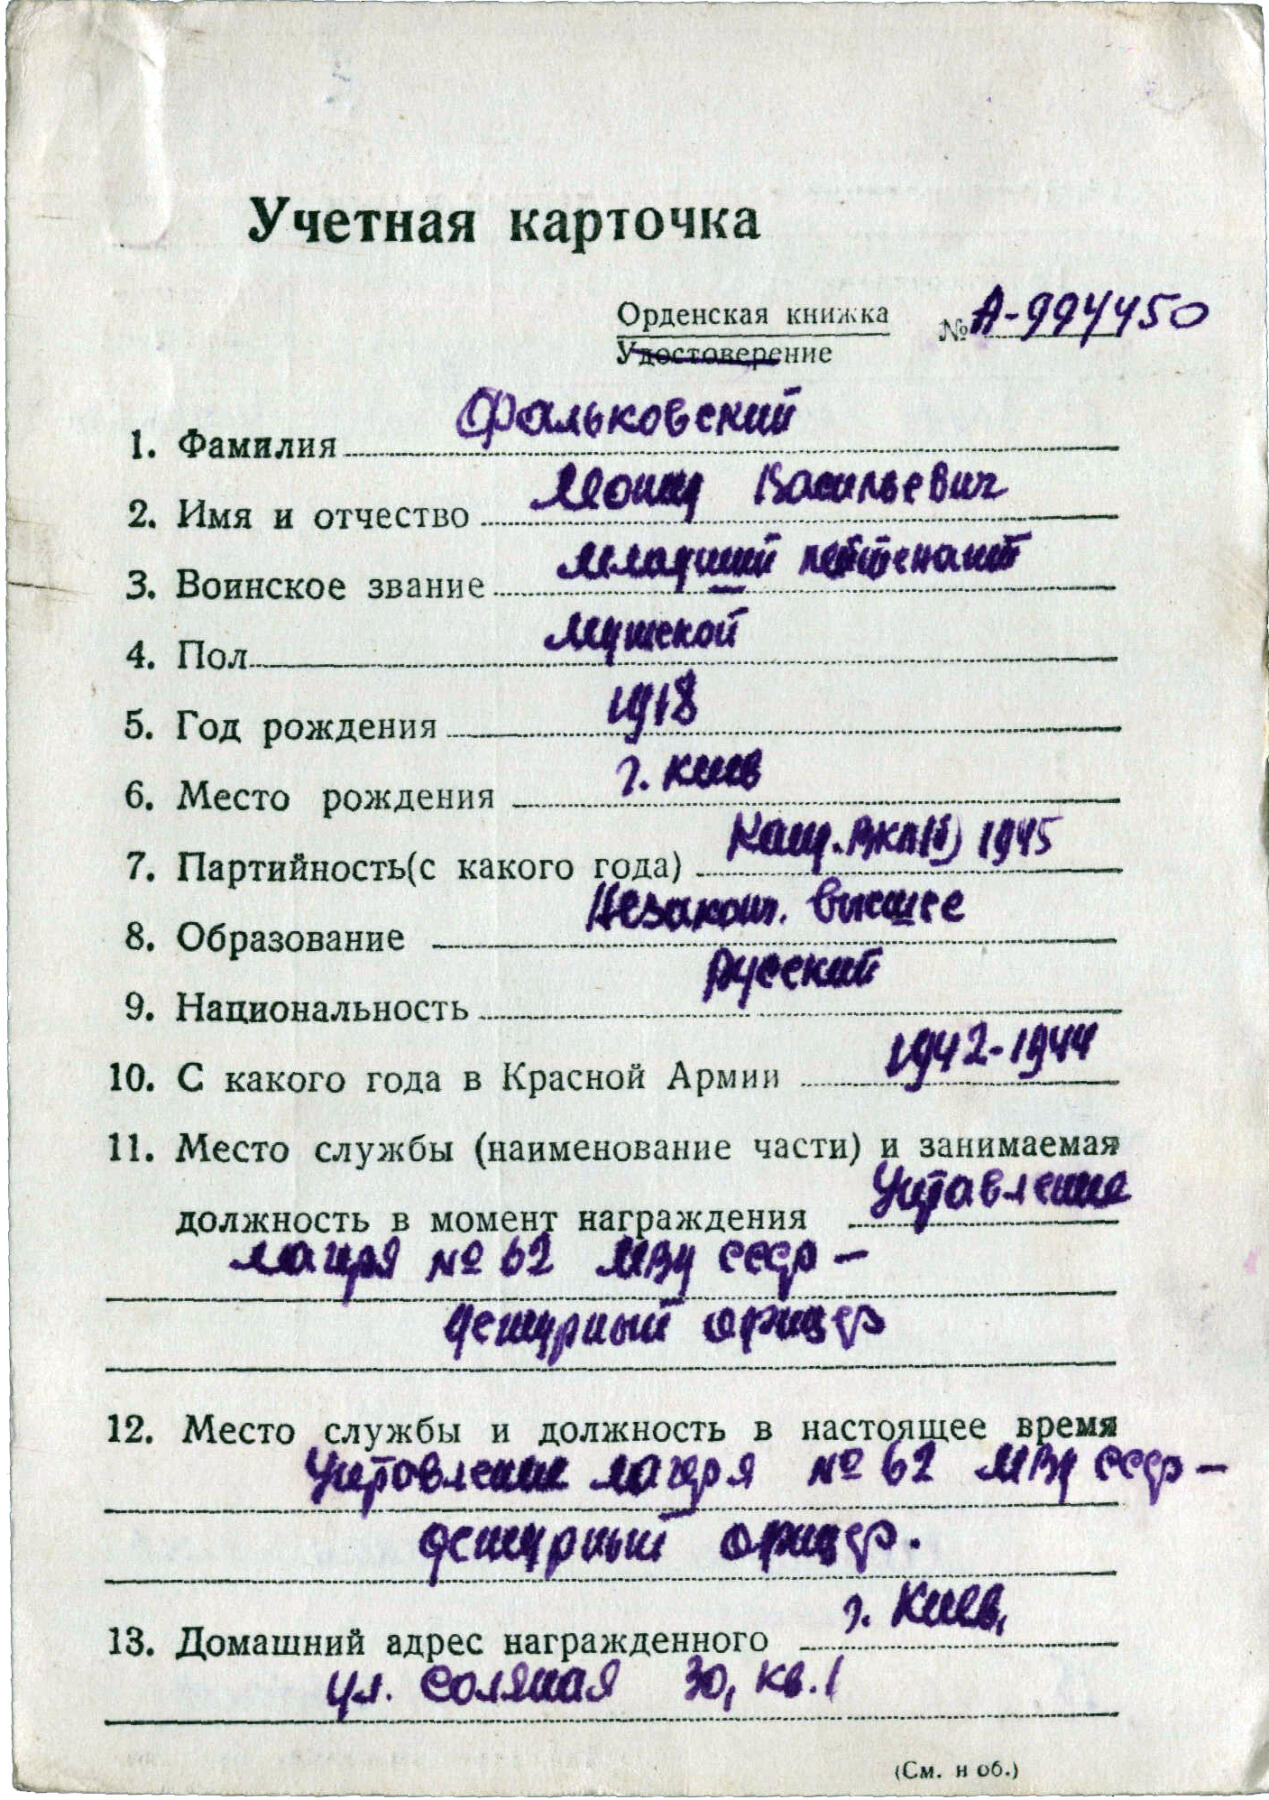 Учетная карточка
Орденская книжка № А-994450
Удостоверение
1. Фамилия Фальковский
2. Имя и отчество Васильевич
3. Воинское звание младший лейтенант
4. Пол мужской
5. Год рождения 1918
6. Место рождения г. Киев
7. Партийность(с какого года) Канд. ВКП(б) 1945
8. Образование Незакон. высшее
9. Национальность русский
10. С какого года в Красной Армии 1942-1944
11. Место службы (наименование части) и занимаемая
должность в момент награждения Управление
лагеря № 62 МВД СССР –
дежурный офицер
12. Место службы и должность в настоящее время
Управление лагеря № 62 МВД СССР –
дежурный офицер.
13. Домашний адрес награжденного г. Киев,
ул. Соляная 30, кв. 1
(См. н об.)